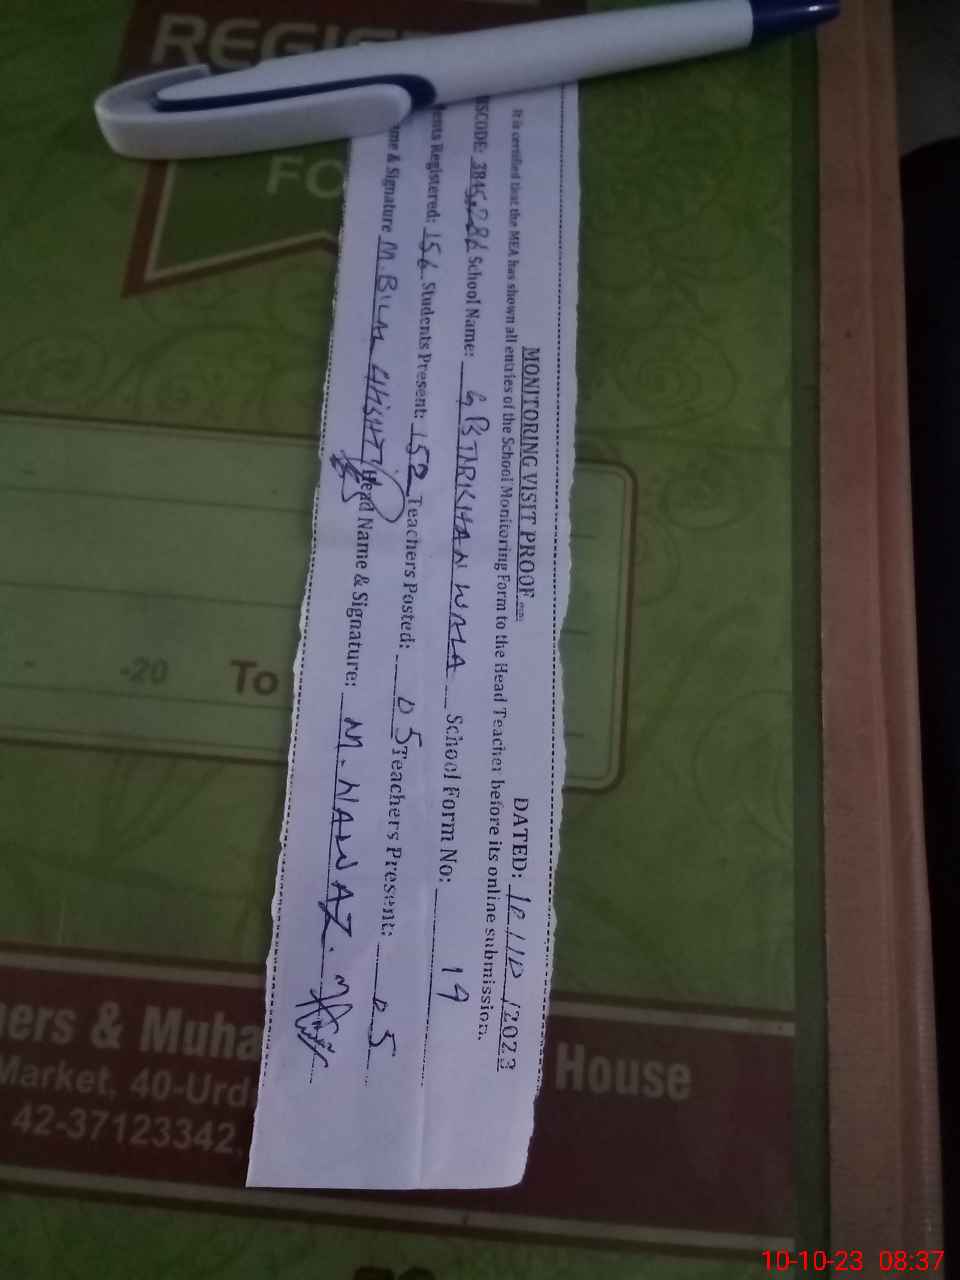 MONITORING VISIT PROOF
DATED: 10/10/2023
It is certified that the MEA has shown all entries of the School Monitoring Form to the Head Teacher before its online submission.
School Name: School Form No: 14
ents Registered: 156 Students Present: 152 Teachers Posted: 05 Teachers Present: 05
me & Signature M. Head Name & Signature: M. NAWAZ.
FO
-20 To
ers & Muha House
Market, 40-Urd
42-37123342,
10-10-23 08:37